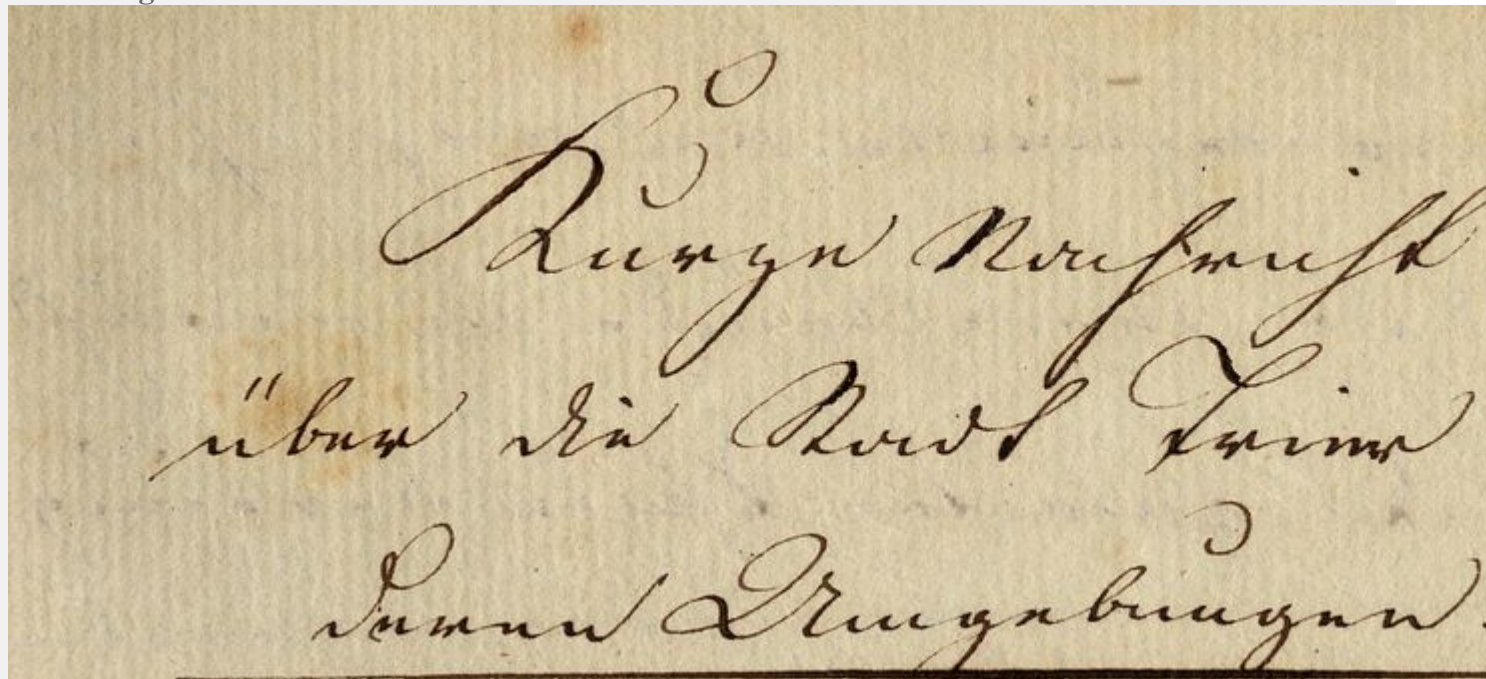 Kurze Nachricht
über die Stadt Trier
deren Umgebungen.